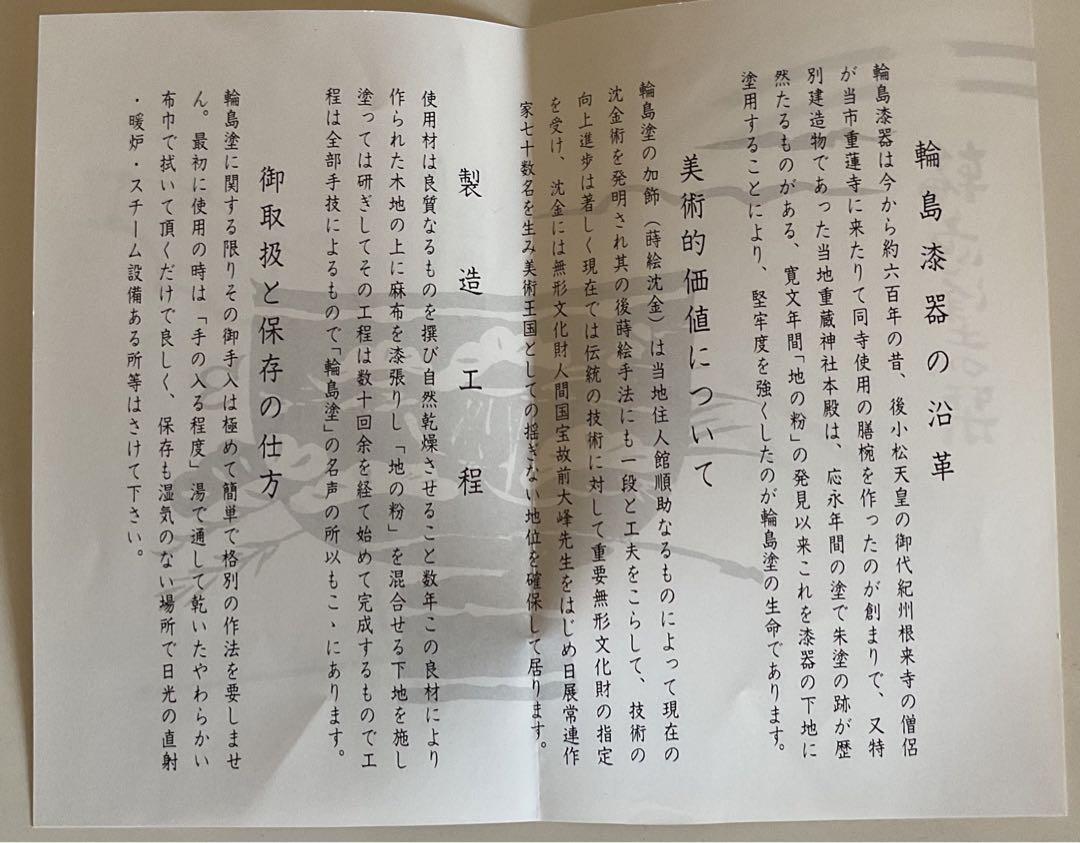 輪島漆器の沿革
輪島漆器は今から約六百年の昔、後小松天皇の御代紀州根来寺の僧侶
が当市重蓮寺に来たりて同寺使用の膳椀を作ったのが創まりで、又特
別建造物であった当地重蔵神社本殿は、応永年間の塗で朱塗の跡が歴
然たるものがある、寛文年間「地の粉」の発見以来これを漆器の下地に
塗用することにより、堅牢度を強くしたのが輪島塗の生命であります。
美術的価値について
輪島塗の加飾（蒔絵沈金）は当地住人館順助なるものによって現在の
沈金術を発明され其の後蒔絵手法にも一段と工夫をこらして、技術の
向上進歩は著しく現在では伝統の技術に対して重要無形文化財の指定
を受け、沈金には無形文化財人間国宝故前大峰先生をはじめ日展常連作
家七十数名を生み美術王国としての揺ぎない地位を確保して居ります。
製造工程
使用材は良質なるものを撰び自然乾燥させること数年この良材により
作られた木地の上に麻布を漆張りし「地の粉」を混合せる下地を施し
塗っては研ぎしてその工程は数十回余を経て始めて完成するもので工
程は全部手技によるもので「輪島塗」の名声の所以もこゝにあります。
御取扱と保存の仕方
輪島塗に関する限りその御手入は極めて簡単で格別の作法を要しませ
ん。最初に使用の時は「手の入る程度」湯で通して乾いたやわらかい
布巾で拭いて頂くだけで良しく、保存も湿気のない場所で日光の直射
・暖炉・スチーム設備ある所等はさけて下さい。